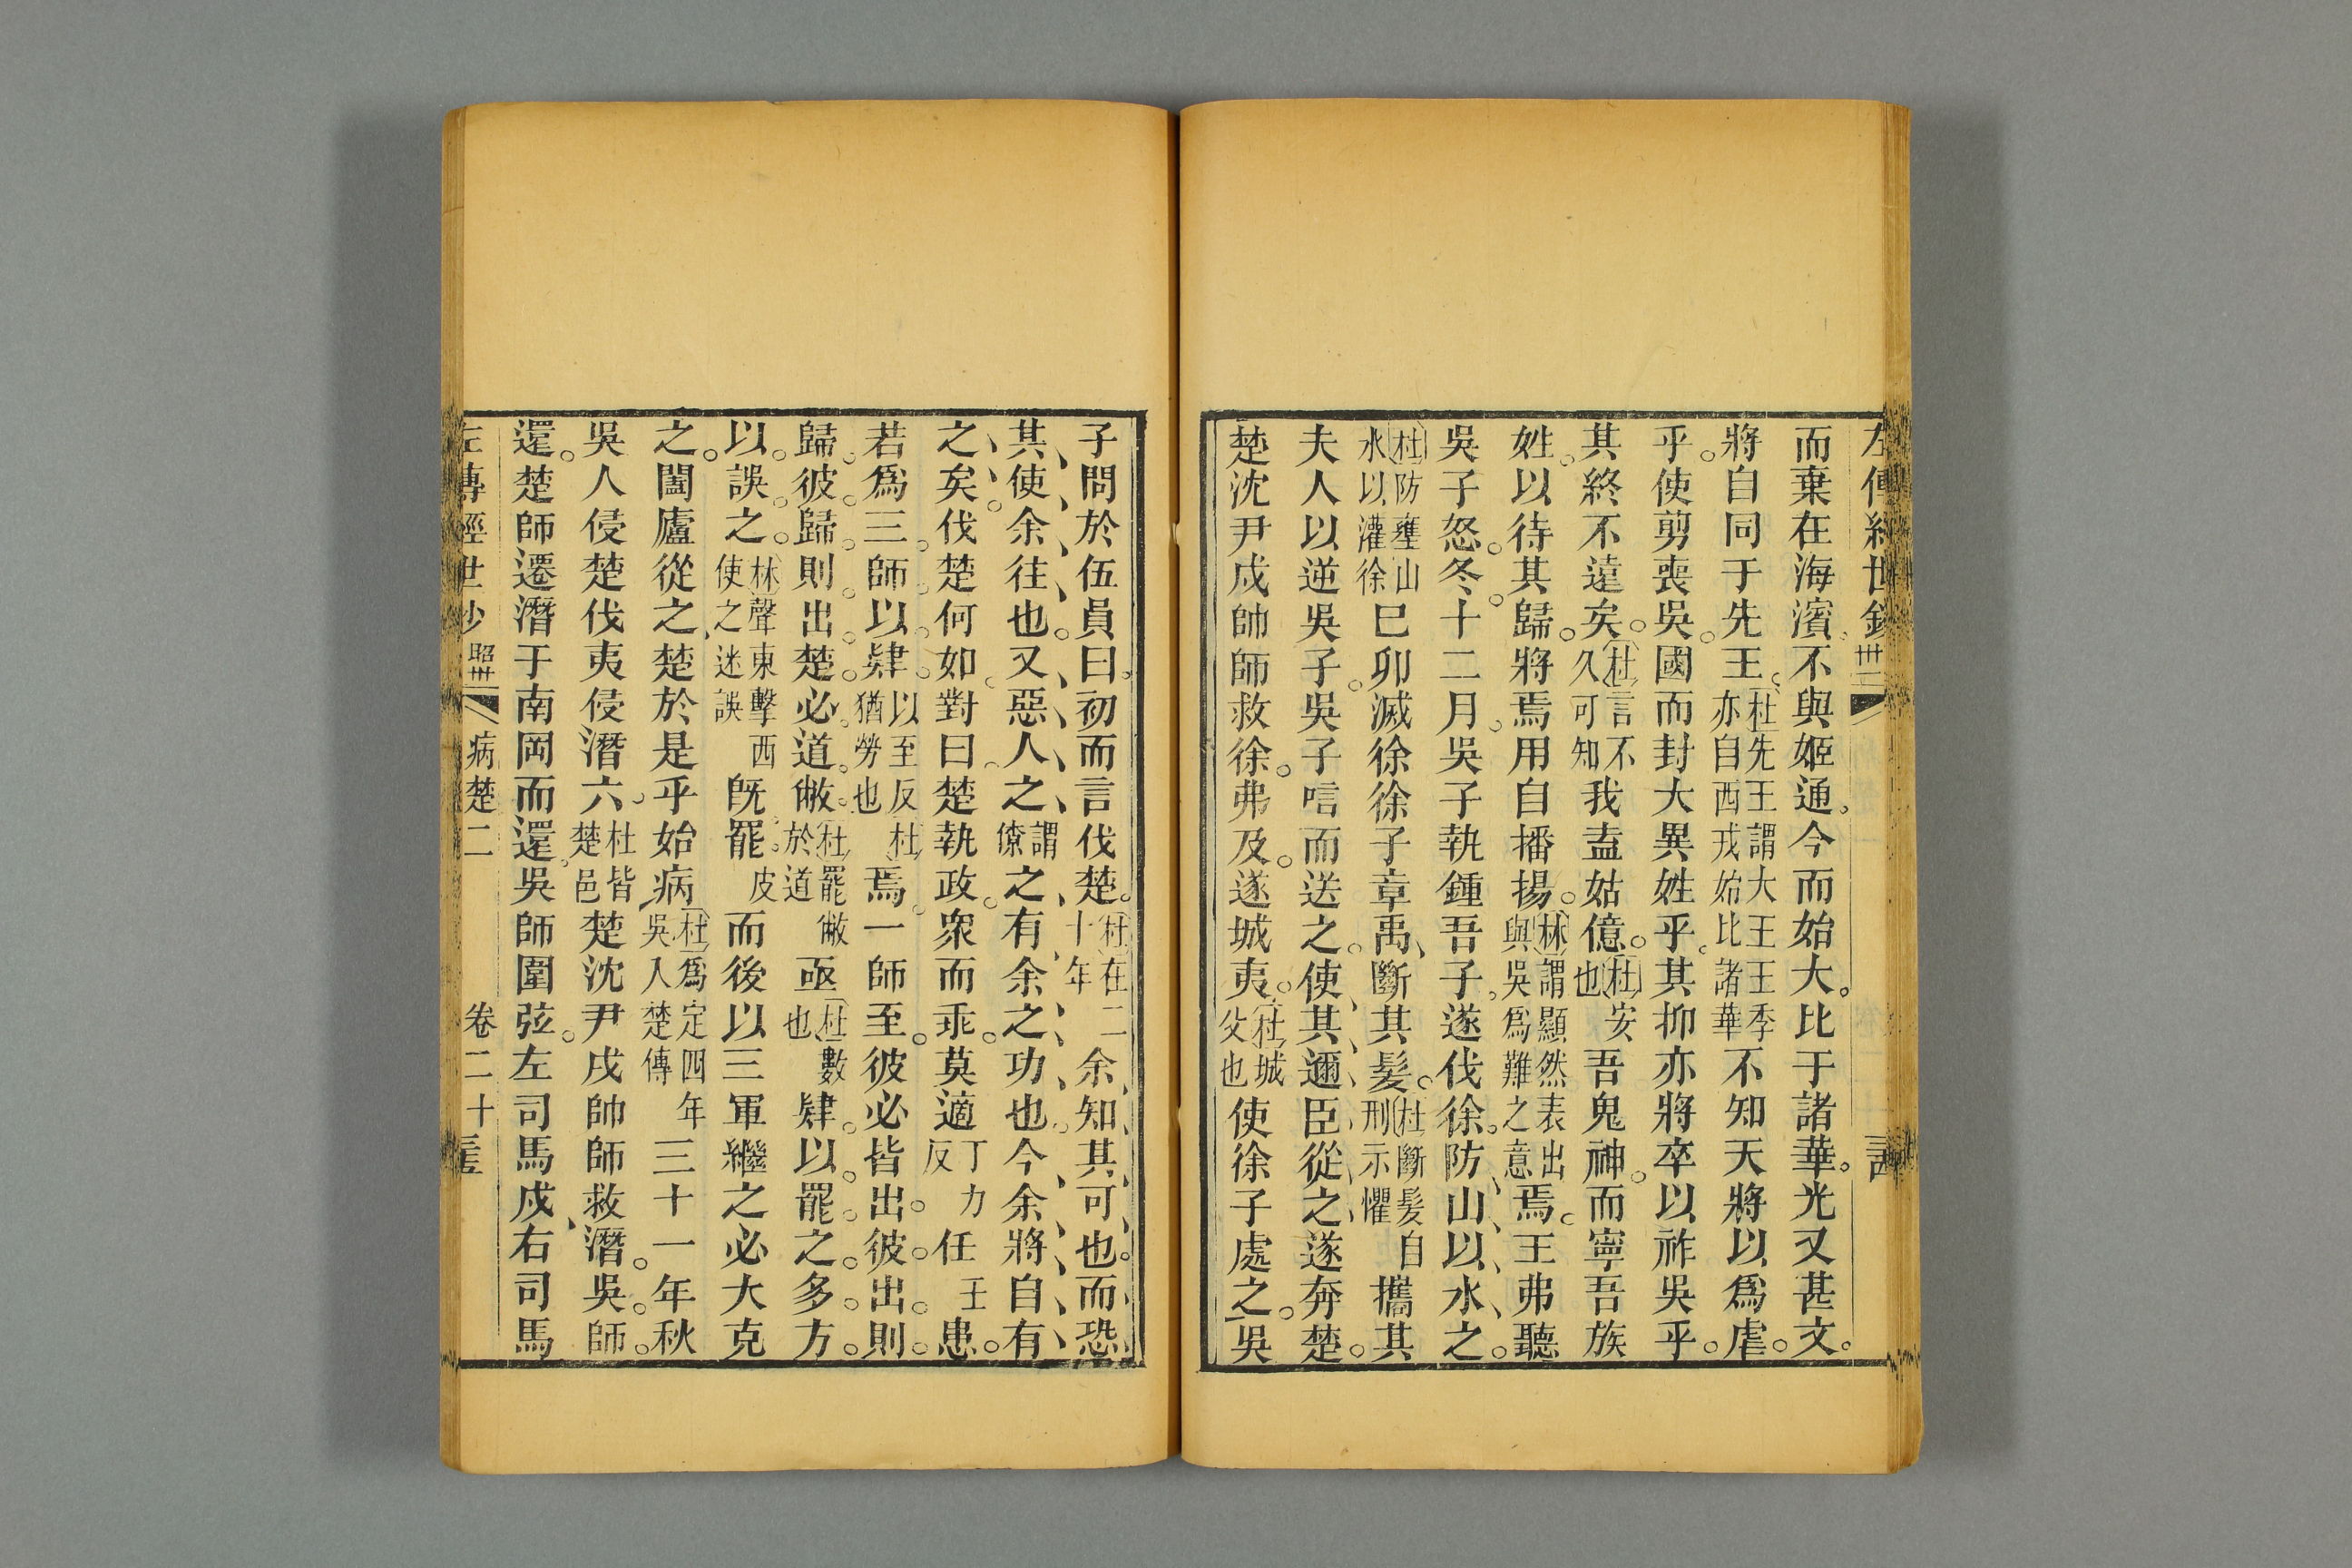 而棄在海濱不與姬通今而始大比于諸華光又甚文
將自同于先王杜先王謂大王王季亦自西戎始比諸華不知天將以爲虐
乎使剪喪吳國而封大異姓乎其抑亦將卒以祚吳乎
其終不遠矣杜言不久可知我盍姑億杜安也吾鬼神而寧吾族
姓以待其歸將焉用自播揚林謂顯然表出與吳爲難之意焉王弗聽
吳子怒冬十二月吳子執鍾吾子遂伐徐防山以水之
杜防壅山水以灌徐巳卯滅徐徐子章禹斷其髮杜斷髮自刑示懼攜其
夫人以逆吳子吳子唁而送之使其邇臣從之遂奔楚
楚沈尹戍帥師救徐弗及遂城夷杜城父也使徐子處之吳
子問於伍員曰初而言伐楚杜在二十年余知其可也而恐
其使余往也又惡人之謂僚之有余之功也今余將自有
之矣伐楚何如對曰楚執政衆而乖莫適丁力反任壬患
若爲三師以肄以至反杜猶勞也焉一師至彼必皆出彼出則
歸彼歸則出楚必道敝杜罷敝於道亟杜數也肄以罷之多方
以誤之林聲東擊西使之迷誤旣罷皮而後以三軍繼之必大克
之闔廬從之楚於是乎始病杜爲定四年吳入楚傳三十一年秋
吳人侵楚伐夷侵潛六杜皆楚邑楚沈尹戌帥師救潛吳師
還楚師遷潛于南岡而還吳師圍弦左司馬戍右司馬
左傳經世鈔 昭卅 病楚二 卷二十